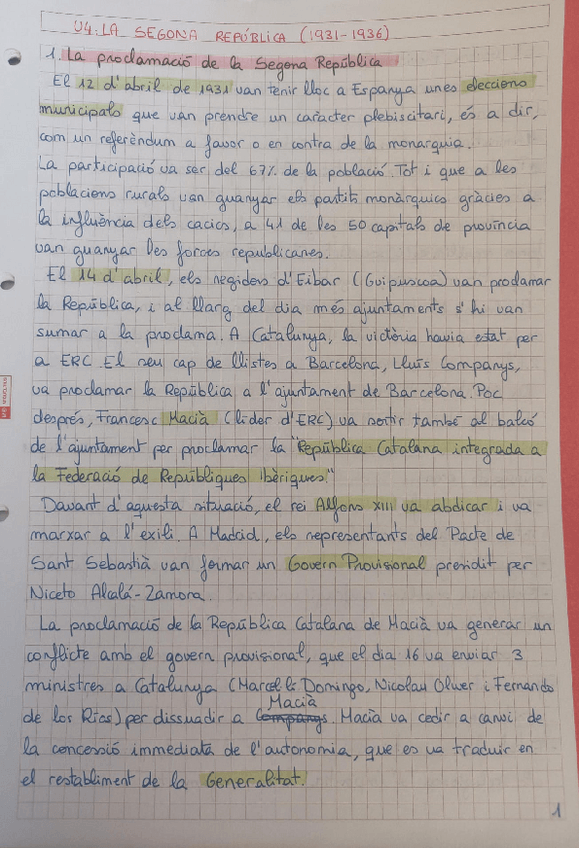 U4: LA SEGONA REPÚBLICA (1931-1936)
1. La proclamació de la Segona República
El 12 d'abril de 1931 van tenir lloc a Espanya unes eleccions
municipals que van prendre un caràcter plebiscitari, és a dir,
com un referèndum a favor o en contra de la monarquia.
La participació va ser del 67% de la població. Tot i que a les
poblacions rurals van guanyar els partits monàrquics gràcies a
la influència dels cacics, a 41 de les 50 capitals de província
van guanyar les forces republicanes.
El 14 d'abril, els regidors d'Eibar (Guipuscoa) van proclamar
la República, i al llarg del dia més ajuntaments s'hi van
sumar a la proclama. A Catalunya, la victòria havia estat per
a ERC. El seu cap de llistes a Barcelona, Lluís Companys,
va proclamar la República a l'ajuntament de Barcelona. Poc
després, Francesc Macià (líder d'ERC) va sortir també al balcó
de l'ajuntament per proclamar la "República Catalana integrada a
la Federació de Repúbliques Ibèriques"
Davant d'aquesta situació, el rei Alfons XIII va abdicar i va
marxar a l'exili. A Madrid, els representants del Pacte de
Sant Sebastià van formar un Govern Provisional presidit per
Niceto Alcalá-Zamora.
La proclamació de la República Catalana de Macià va generar un
conflicte amb el govern provisional, que el dia 16 va enviar 3
ministres a Catalunya (Marcel·lí Domingo, Nicolau Olwer i Fernando
de los Ríos) per dissuadir a Companys Macià. Macià va cedir a canvi de
la concessió immediata de l'autonomia, que es va traduir en
el restabliment de la Generalitat.
1